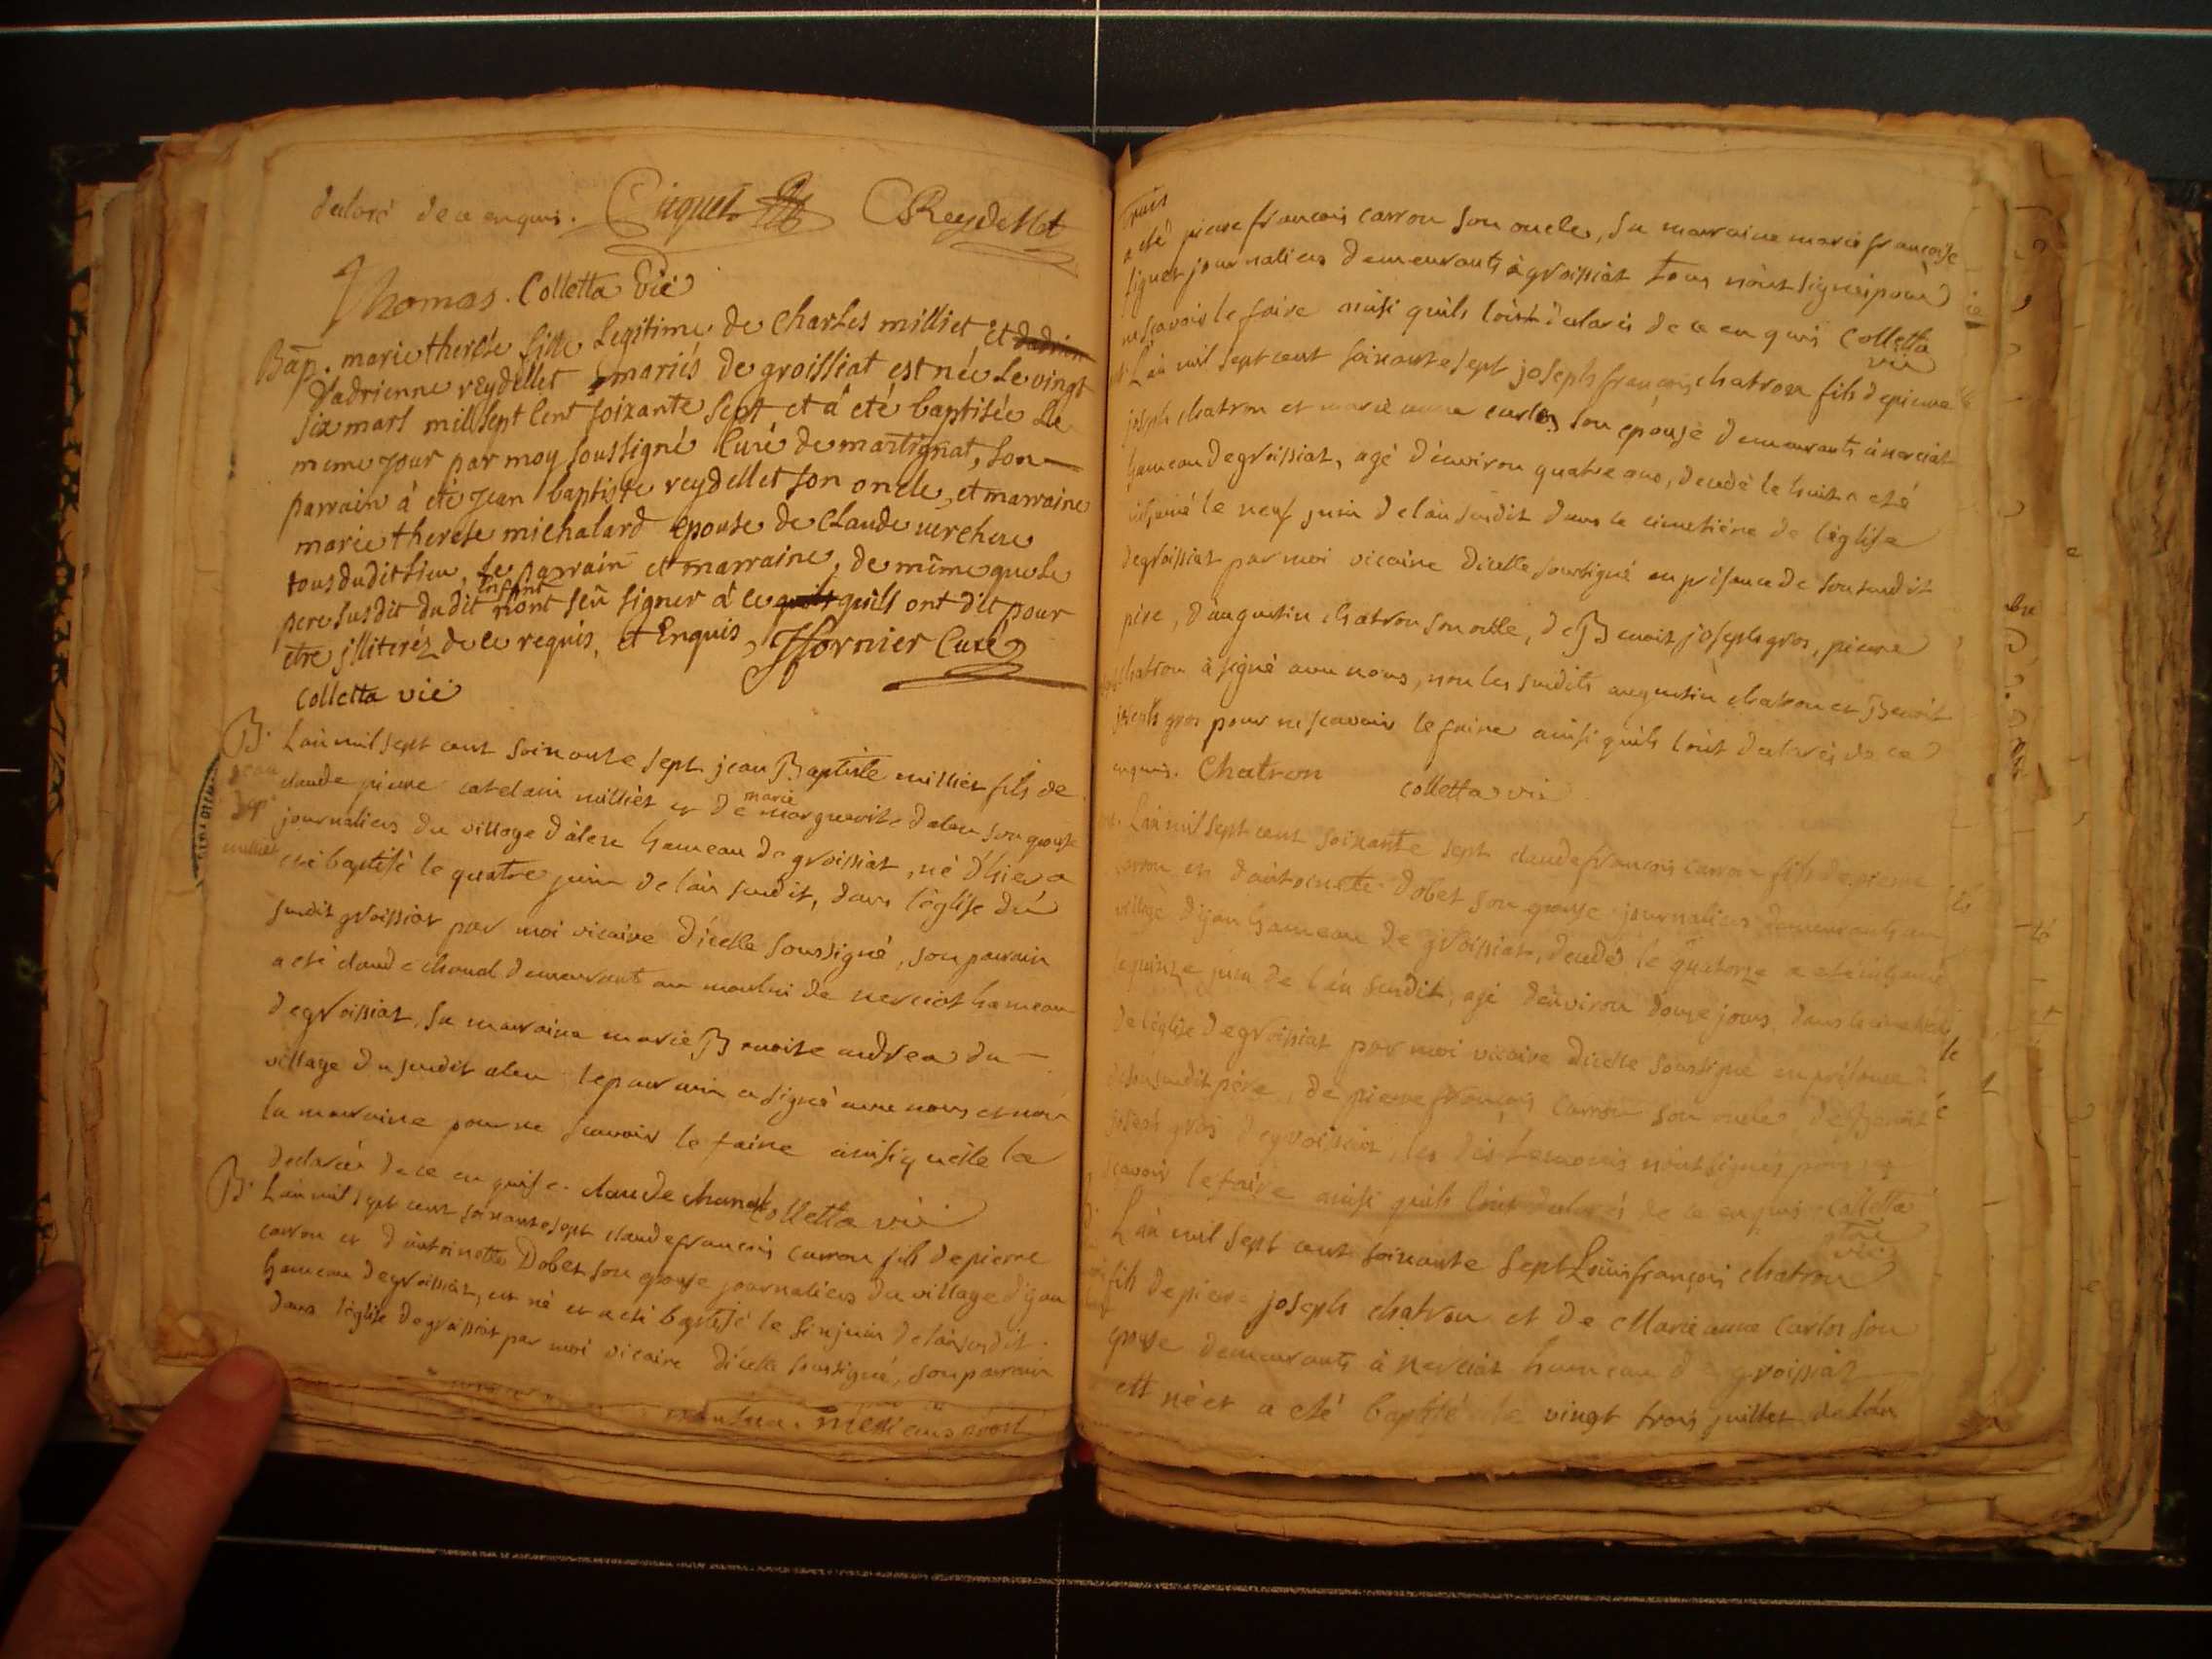 declaré de ce enquis. Ciquet CReydellet
Thomas. Colletta vic
Bap. marie therese fille Legitime de Charles milliet Et dadrien
d'adrienne reydellet mariés de groissiat est née Le vingt
six mars mill sept Cent soixante sept et à eté baptisée Le
meme jour par moy soussigné Curé de martignat, son
parrain à eté jean baptiste reydellet son oncle, et marraine
marie therese michalard epouse de Claude verchere
tous dudit lieu, le parrain et marraine, de même que le
pere susdit dudit Enfant n'ont sçu signer à ce quils quils ont dit pour
etre illiterés de ce requis, et Enquis JFornier Curé
Colletta vic
B. L'an mil sept cent soixante sept jean Baptiste milliet fils de
jean
claude pierre catelain milliet et de marie marguerite daleu son epouse
Bp
journaliers du village d'aleu hameau de groissiat, né d'hier a
milliet
eté baptisé le quatre juin de l'an susdit, dans l'église du
susdit groissiat par moi vicaire d'icelle soussigné, son parrain
a eté claude chanal demeurant au moulin de nerciat hameau
de groissiat, sa marraine marie Benoite andrea du
village du susdit aleu le parrain a signé avec nous et non
la marraine pour ne scavoir le faire ainsi quelle la
declarée de ce enquise. claude chanal Colletta vic
B. L'an mil sept cent soixante sept claude françois carron fils de pierre
carron et d'antoinette Dobet son epouse journaliers du village d'ijan
hameau de groissiat, est né et a eté baptisé le six juin de l'an susdit
dans l'église de groissiat par moi vicaire d'icelle soussigné, son parrain
a eté pierre françois carron son oncle, sa marraine marie françoise
journaliers demeurants à groissiat tous n'ont signés pour
ne scavoir le faire ainsi quils l'ont declarés de ce enquis Colletta
vic
L'an mil sept cent soixante sept joseph françois chatron fils de pierre
joseph chatron et marie anne carlos son epouse demeurants à nerciat
hameau de groissiat, agé d'environ quatre ans, decedé le huit a eté
inhumé le neuf juin de l'an susdit dans le cimetiére de l'église
de groissiat par moi vicaire d'icelle soussigné en présence de son susdit
pére, d'augustin chatron son oncle, de Benoit joseph gros, pierre
chatron à signé avec nous, non les susdits augustin chatron et Benoit
joseph gros pour ne scavoir le faire ainsi quils l'ont declarés de ce
enquis. Chatron colletta vic
L'an mil sept cent soixante sept claude françois carron fils de pierre
carron et d'antoinette Dobet son epouse journaliers demeurants au
village d'ijan hameau de groissiat, decedé le quatorze a eté inhumé
le quinze juin de l'an susdit, agé d'environ douze jours, dans le cimetiére
de l'église de groissiat par moi vicaire d'icelle soussigné en présence
de son susdit pére, de pierre françois carron son oncle, de Benoit
joseph gros de groissiat, les dits temoins n'ont signés pour ne
scavoir le faire ainsi quils l'ont declarés de ce enquis colletta
vic
L'an mil sept cent soixante sept Louis françois chatron
fils de pierre joseph chatron et de Marie anne Carlos son
epouse demeurants à nerciat hameau de groissiat
est né et a eté baptisé le vingt trois juillet de l'an